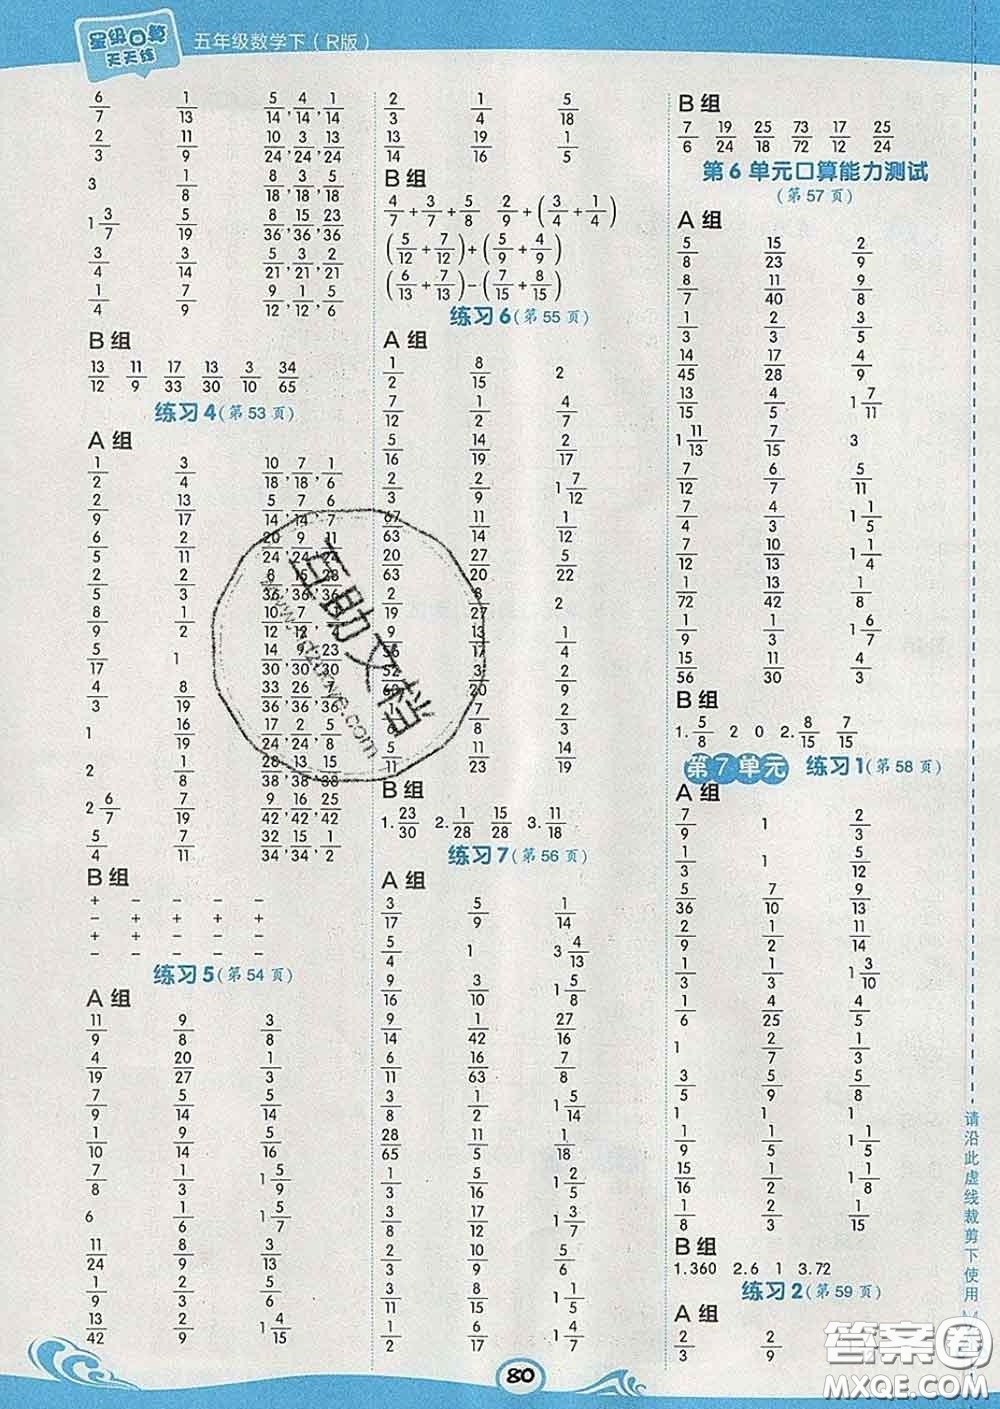 星级口算
天天练
五年级数学下（R版）
6/7 1/13 5/14, 4/14, 1/14
2/3 11/9 10/24, 3/24, 13/24
3 1/8 8/18, 3/18, 5/18
1 3/7 5/19 8/36, 15/36, 23/36
3/4 3/14 5/21, 3/21, 2/21
1/4 7/9 9/12, 1/12, 5/6
B 组
13/12 11/9 17/33 13/30 3/10 34/65
练习 4（第 53 页）
A 组
1/2 3/4 10/18, 7/18, 1/6
2/9 13/17 5/14, 7/14, 6/7
6/5 2/11 20/24, 9/24, 11/24
2/5 2/3 8/36, 15/36, 28/36
1/8 1/2 10/12, 7/12
5/17 1 14/30, 9/30, 23/30
4/3 8/19 33/36, 26/36, 7/36
1 16/19 17/24, 2/24, 5/8
2 1/8 28/54, 13/54, 15/54
2 6/7 7/19 9/42, 16/42, 25/42
5/4 7/11 32/34, 15/34, 1/2
B 组
+ − + − +
− + − + +
+ − + − −
− − − − −
练习 5（第 54 页）
A 组
11/9 9/8 3/8
4/19 20/27 1/3
7/9 5/14 5/14
1/10 9/14 5/16
7/8 3/8 1 5/9
6 1/6 1 5/7
11/24 8/9 3/14
1/6 3/2 5/6
13/42 2/9 1 4/15
2/3 1/4 5/18
13/14 19/16 1/5
B 组
4/7 + 3/7 + 5/8 2/9 + (3/4 + 1/4)
(5/12 + 7/12) + (5/9 + 4/9)
(6/13 + 7/13) − (7/15 + 8/15)
练习 6（第 55 页）
A 组
1/2 8/15 2
7/12 1/2 4/7
5/16 14/19 2/17
2/3 2/9 1 7/12
67/63 11/14 1/12
20/63 27/20 5/22
2/9 8/27 2
19/56 13/17 1/3
3/20 9/8
7/8 2/7
5/11 11/23 13/14
B 组
1. 23/30 2. 1/28 15/28 3. 11/18
练习 7（第 56 页）
A 组
3/17 5/9 1/14
5/4 1 3 4/13
9/16 3/10 1 5/8
9/14 1/42 27/16
6/11 16/63 7/8
3/8 1/2 1 5/14
28/65 11/5 1/8
1/3 11/8 1 2/5
2/3 14/17 1 3/7
3/2 9/10 5/6
4/3 1/3 1 1/5
1/2 2/17 1 4/7
B 组
7/6 19/24 25/18 73/72 17/12 25/24
第 6 单元口算能力测试
（第 57 页）
A 组
5/8 15/23 2/9
8/7 11/40 9/8
1/3 2/3 3/5
14/45 17/28 4/9
13/15 3/10 1 7/11
1 11/13 7/15 3
7/12 2/3 5/11
3/4 7/24 1 1/5
7/12 10/13 1 1/4
1/72 13/42 1/2
1/9 3/4 1 6/7
15/56 11/30 4/3
B 组
1. 5/8 2 0 2. 8/15 7/15
第 7 单元 练习 1（第 58 页）
A 组
7/9 1 2/3
1/3 1 5/12
5/36 7/10 13/14
2/9 1/3 1 3/10
1/6 4/25 5/4
1 7/9 3/8
3/5 5/9 5/8
1 2 1/4
15/16 1/2 1 1/8
1/8 2/3 1/15
B 组
1.360 2.6 1 3.72
练习 2（第 59 页）
A 组
2/3 2/9
80
请沿此虚线裁剪下使用
互助文档
答案圈
MXQE.COM